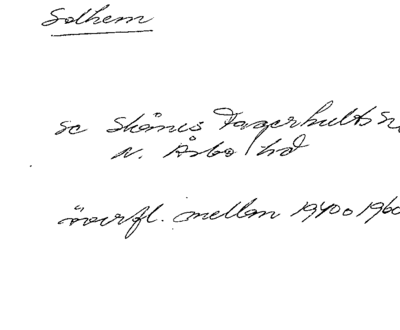 Solhem
se Skånes Fagerhults sn
N. Åsbo hd
överfl. mellan 1940 o 1960